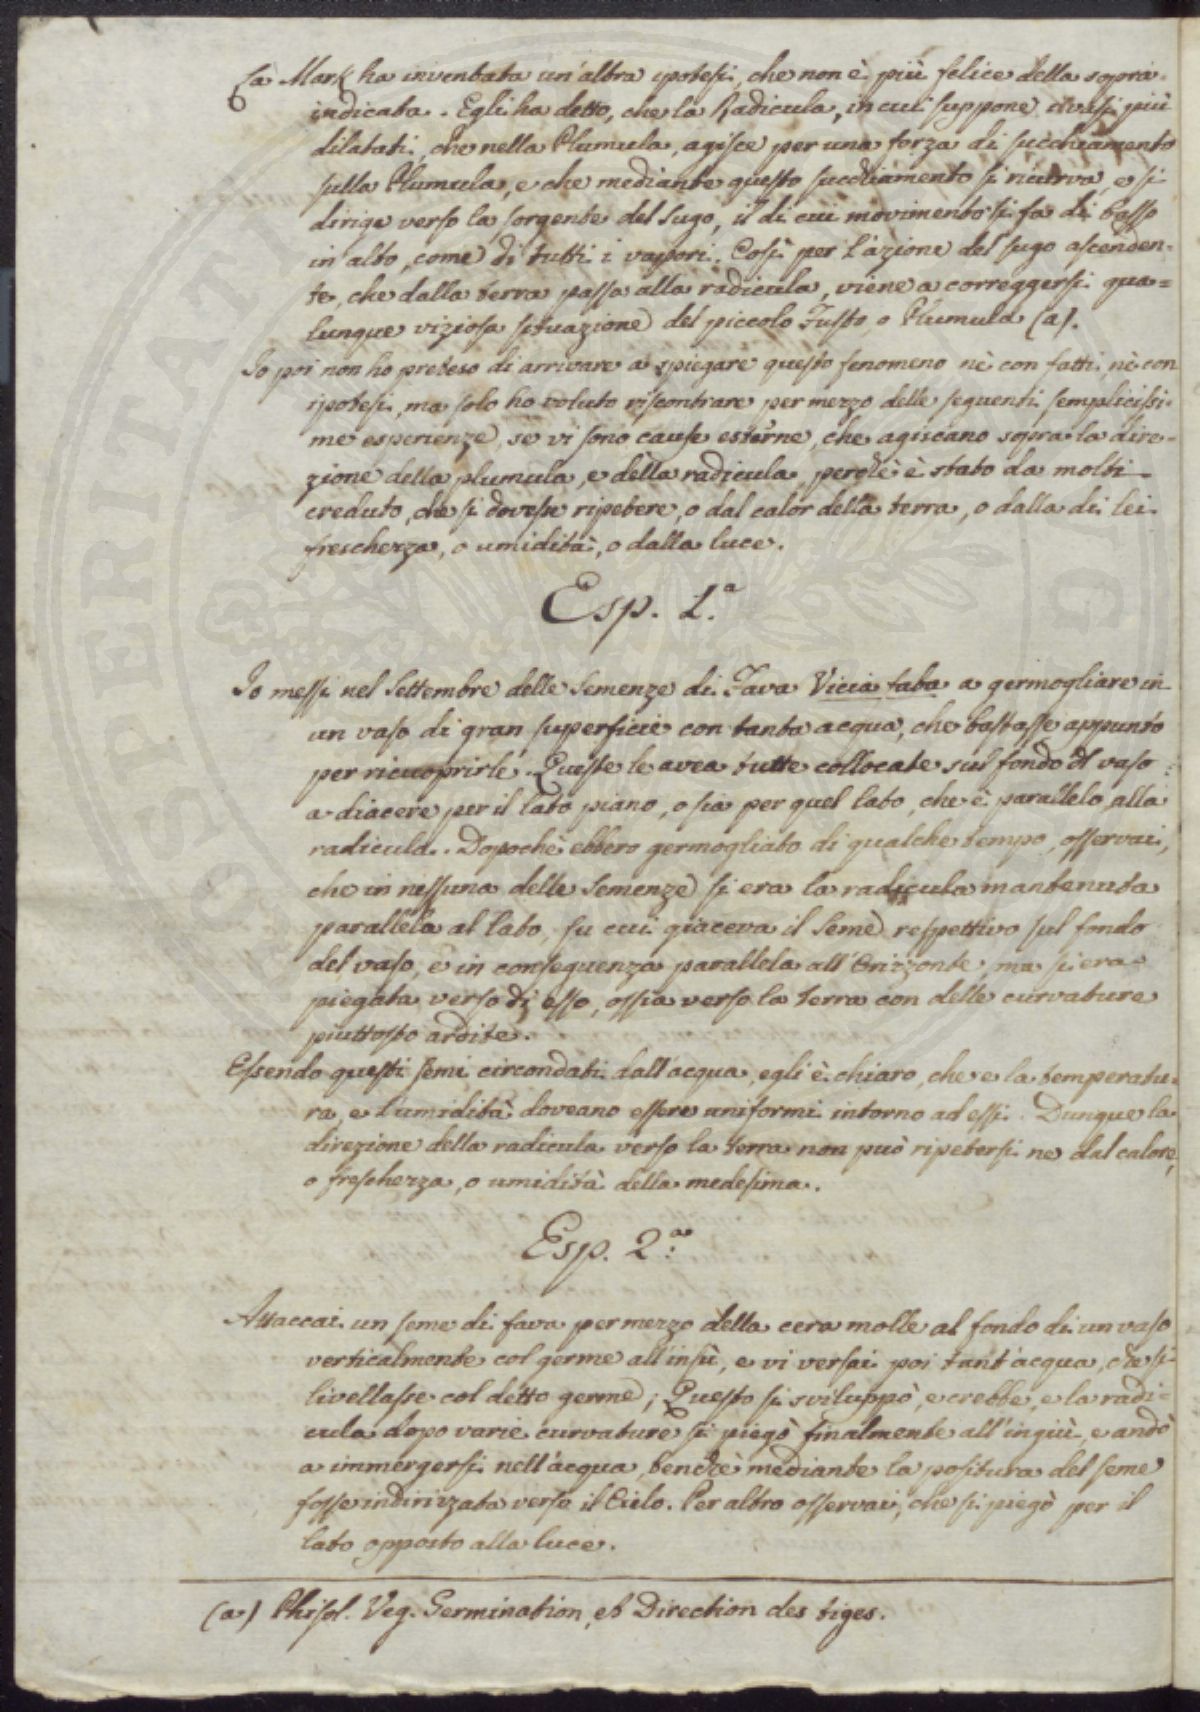 La Mark ha inventata un'altra ipotesi, che non è più felice della sopra-
indicata. Egli ha detto, che la Radicula, in cui suppone i vasi più
dilatati, che nella Plumula, agisce per una forza di succhiamento
sulla Plumula, e che mediante questo succhiamento si ricurva, e si
dirige verso la sorgente del Sugo, il di cui movimento si fa di basso
in alto, come di tutti i vapori. Così per l'azione del sugo ascenden-
te, che dalla terra passa alla radicula, viene a correggersi qua=
lunque viziosa situazione del piccolo Fusto, o Plumula (a).
Io poi non ho preteso di arrivare a spiegare questo fenomeno nè con fatti, nè con
ipotesi, ma solo ho voluto riscontrare per mezzo delle seguenti semplicissi-
me esperienze, se vi sono cause esterne, che agiscano sopra la dire-
zione della plumula, e della radicula, perchè è stato da molti
creduto, che si dovesse ripetere, o dal calor della terra, o dalla di lei
frescherza, o umidità, o dalla luce.
Esp. 1.ª
Io messi nel Settembre delle Semenze di Fava Vicia faba a germogliare in
un vaso di gran superficie con tanta acqua, che bastasse appunto
per ricuoprirle. Queste le avea tutte collocate sul fondo del vaso
a diacere per il lato piano, o sia per quel lato, che è parallelo, alla
radicula. Dopochè ebbero germogliato di qualche tempo, osservai,
che in nessuna delle Semenze si era la radicula mantenuta
parallela al lato, su cui giaceva il Seme respettivo sul fondo
del vaso, e in conseguenza parallela all'Orizzonte, ma si era
piegata verso di esso, ossia verso la terra con delle curvature
piuttosto ardite.
Essendo questi semi circondati dall'acqua, egli è chiaro, che e la temperatu-
ra, e l'umidità doveano essere uniformi intorno ad essi. Dunque la
direzione della radicula verso la terra non può ripetersi ne dal calore,
o frescherza, o umidità della medesima.
Esp. 2.ª
Attaccai un seme di fava per mezzo della cera molle al fondo di un vaso
verticalmente col germe all'insù, e vi versai poi tant'acqua, che si
livellasse col detto germe; Questo si sviluppò, e crebbe, e la radi-
cula dopo varie curvature si piegò finalmente all'ingiù, e andò
a immergersi nell'acqua, benchè mediante la positura del seme
fosse indirizzata verso il Cielo. Per altro osservai, che si piegò per il
lato opposto alla luce.
(a) Phisol. Veg. Germination, et Direction des tiges.